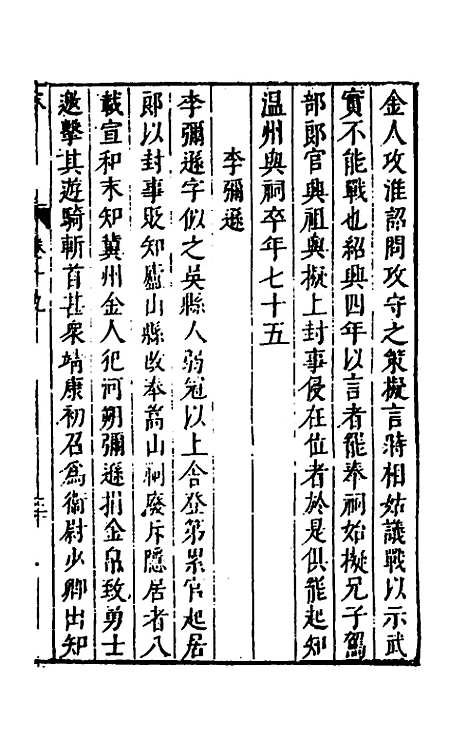 金人攻淮詔問攻守之策擬言將相姑議戰以示武
實不能戰也紹興四年以言者罷奉祠始擬兄子駕
部郎官興祖與擬上封事侵在位者於是俱罷起知
温州與祠卒年七十五
李彌遜
李彌遜字似之吳縣人弱冠以上舍登第累官起居
郎以封事貶知廬山縣改奉嵩山祠廢斥隱居者八
載宣和末知冀州金人犯河朔彌遜捐金帛致勇士
邀擊其遊騎斬首甚衆靖康初召爲衛尉少卿出知
卷十九